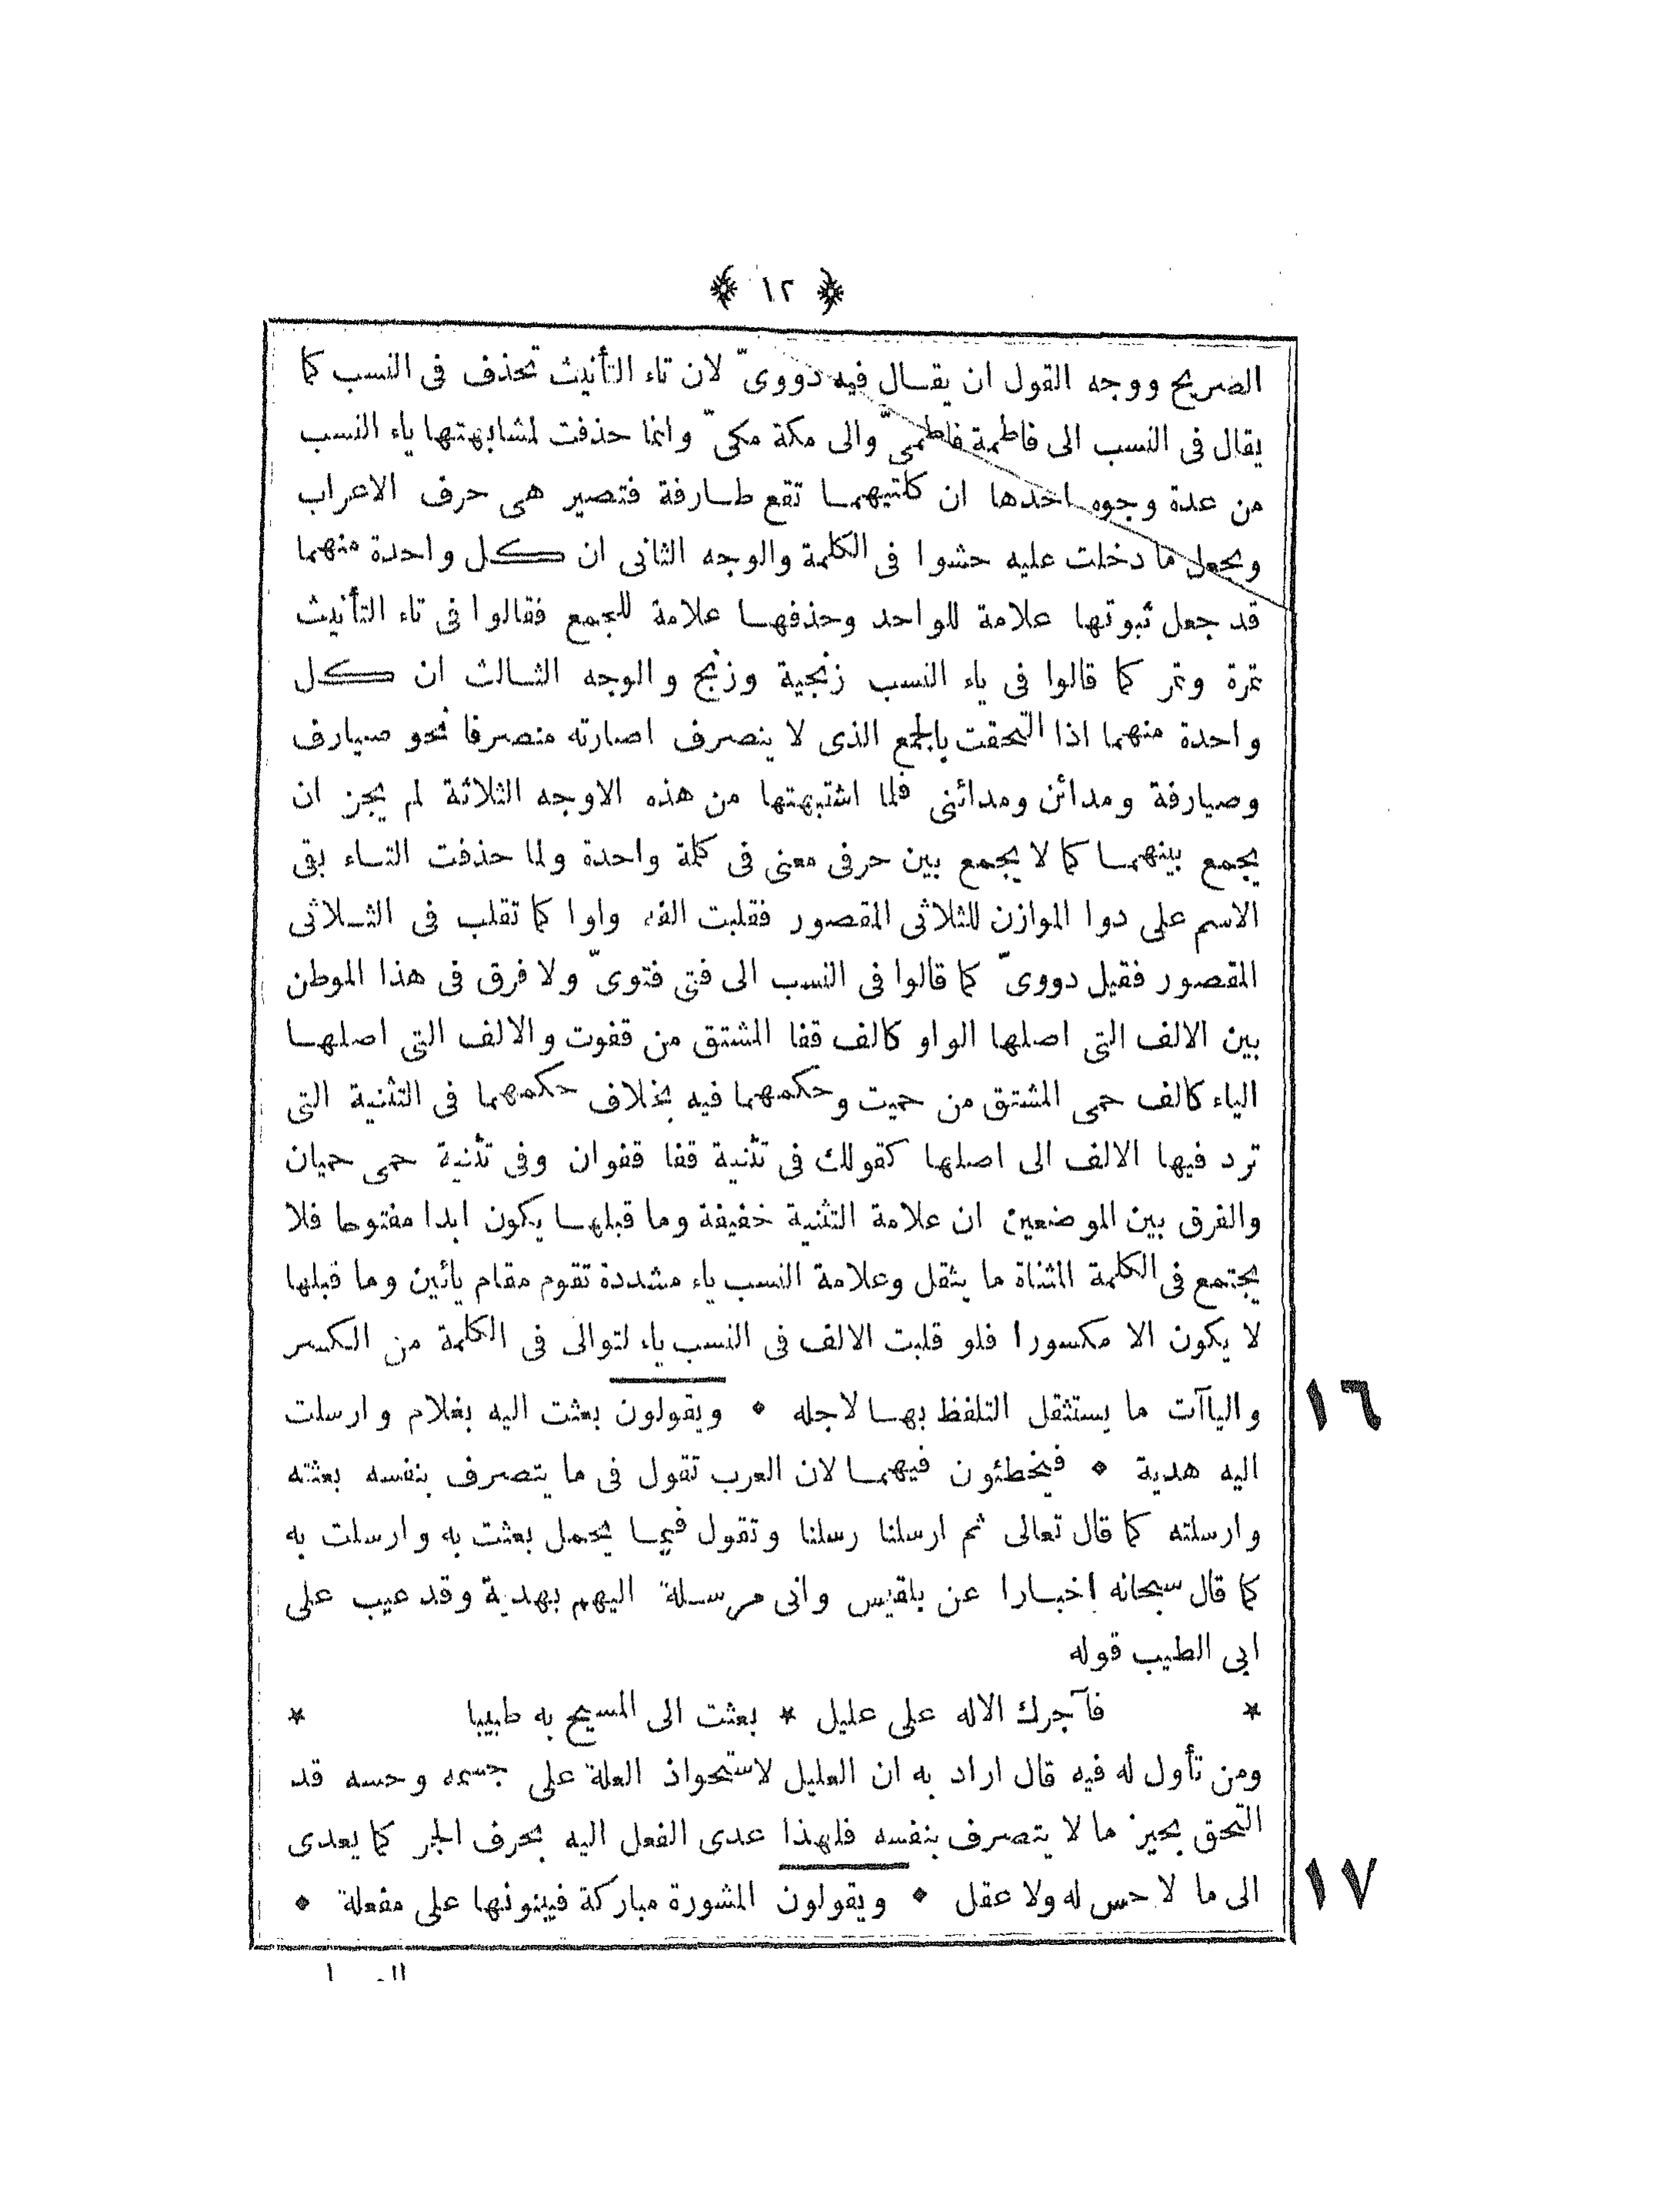 ﴿ ١٢ ﴾
الصريح ووجه القول ان يقال فيه دووىّ لان تاء التأنيث تحذف فى النسب كما
يقال فى النسب الى فاطمة فاطمىّ والى مكة مكىّ وانما حذفت لمشابهتها ياء النسب
من عدة وجوه احدها ان كلتيهما تقع طارفة فتصير هى حرف الاعراب
ويجعل ما دخلت عليه حشوا فى الكلمة والوجه الثانى ان كل واحدة منهما
قد جعل ثبوتها علامة للواحد وحذفها علامة للجمع فقالوا فى تاء التأنيث
تمرة وتمر كما قالوا فى ياء النسب زنجية وزنج والوجه الثالث ان كل
واحدة منهما اذا التحقت بالجمع الذى لا ينصرف اصارته منصرفا نحو صيارف
وصيارفة ومدائن ومدائنى فلما اشتبهتها من هذه الاوجه الثلاثة لم يجز ان
يجمع بينهما كما لا يجمع بين حرفى معنى فى كلمة واحدة ولما حذفت التاء بقى
الاسم على دوا الموازن للثلاثى المقصور فقلبت الفه واوا كما تقلب فى الثلاثى
المقصور فقيل دووىّ كما قالوا فى النسب الى فتى فتوىّ ولا فرق فى هذا الموطن
بين الالف التى اصلها الواو كالف قفا المشتق من قفوت والالف التى اصلها
الياء كالف حمى المشتق من حميت وحكمهما فيه بخلاف حكمهما فى التثنية التى
ترد فيها الالف الى اصلها كقولك فى تثنية قفا قفوان وفى تثنية حمى حميان
والفرق بين الموضعين ان علامة التثنية خفيفة وما قبلها يكون ابدا مفتوحا فلا
يجتمع فى الكلمة المثناة ما يثقل وعلامة النسب ياء مشددة تقوم مقام يائين وما قبلها
لا يكون الا مكسورا فلو قلبت الالف فى النسب ياء لتوالى فى الكلمة من الكسر
والياآت ما يستثقل التلفظ بها لاجله ٭ ويقولون بعثت اليه بغلام وارسلت
١٦
اليه هدية ٭ فيخطئون فيهما لان العرب تقول فى ما يتصرف بنفسه بعثته
وارسلته كما قال تعالى ثم ارسلنا رسلنا وتقول فيما يحمل بعثت به وارسلت به
كما قال سبحانه اخبارا عن بلقيس وانى مرسلة اليهم بهدية وقد عيب على
ابى الطيب قوله
٭ فآجرك الاله على عليل ٭ بعثت الى المسيح به طبيبا ٭
ومن تأول له فيه قال اراد به ان العليل لاستحواذ العلة على جسمه وحسه قد
التحق بحيز ما لا يتصرف بنفسه فلهذا عدى الفعل اليه بحرف الجر كما يعدى
الى ما لا حس له ولا عقل ٭ ويقولون المشورة مباركة فيبنونها على مفعلة ٭
١٧